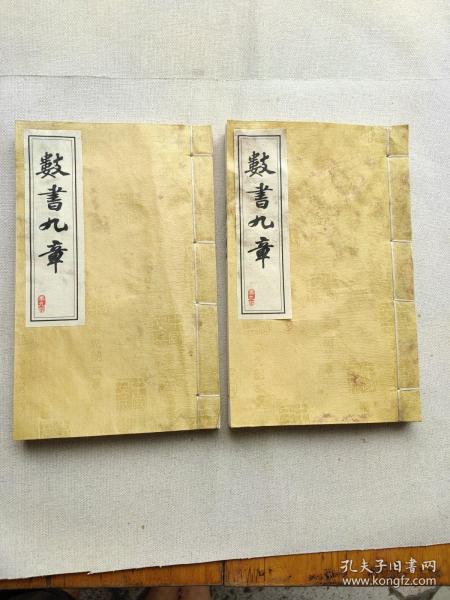 數書九章
數書九章
孔夫子旧书网
www.kongfz.com